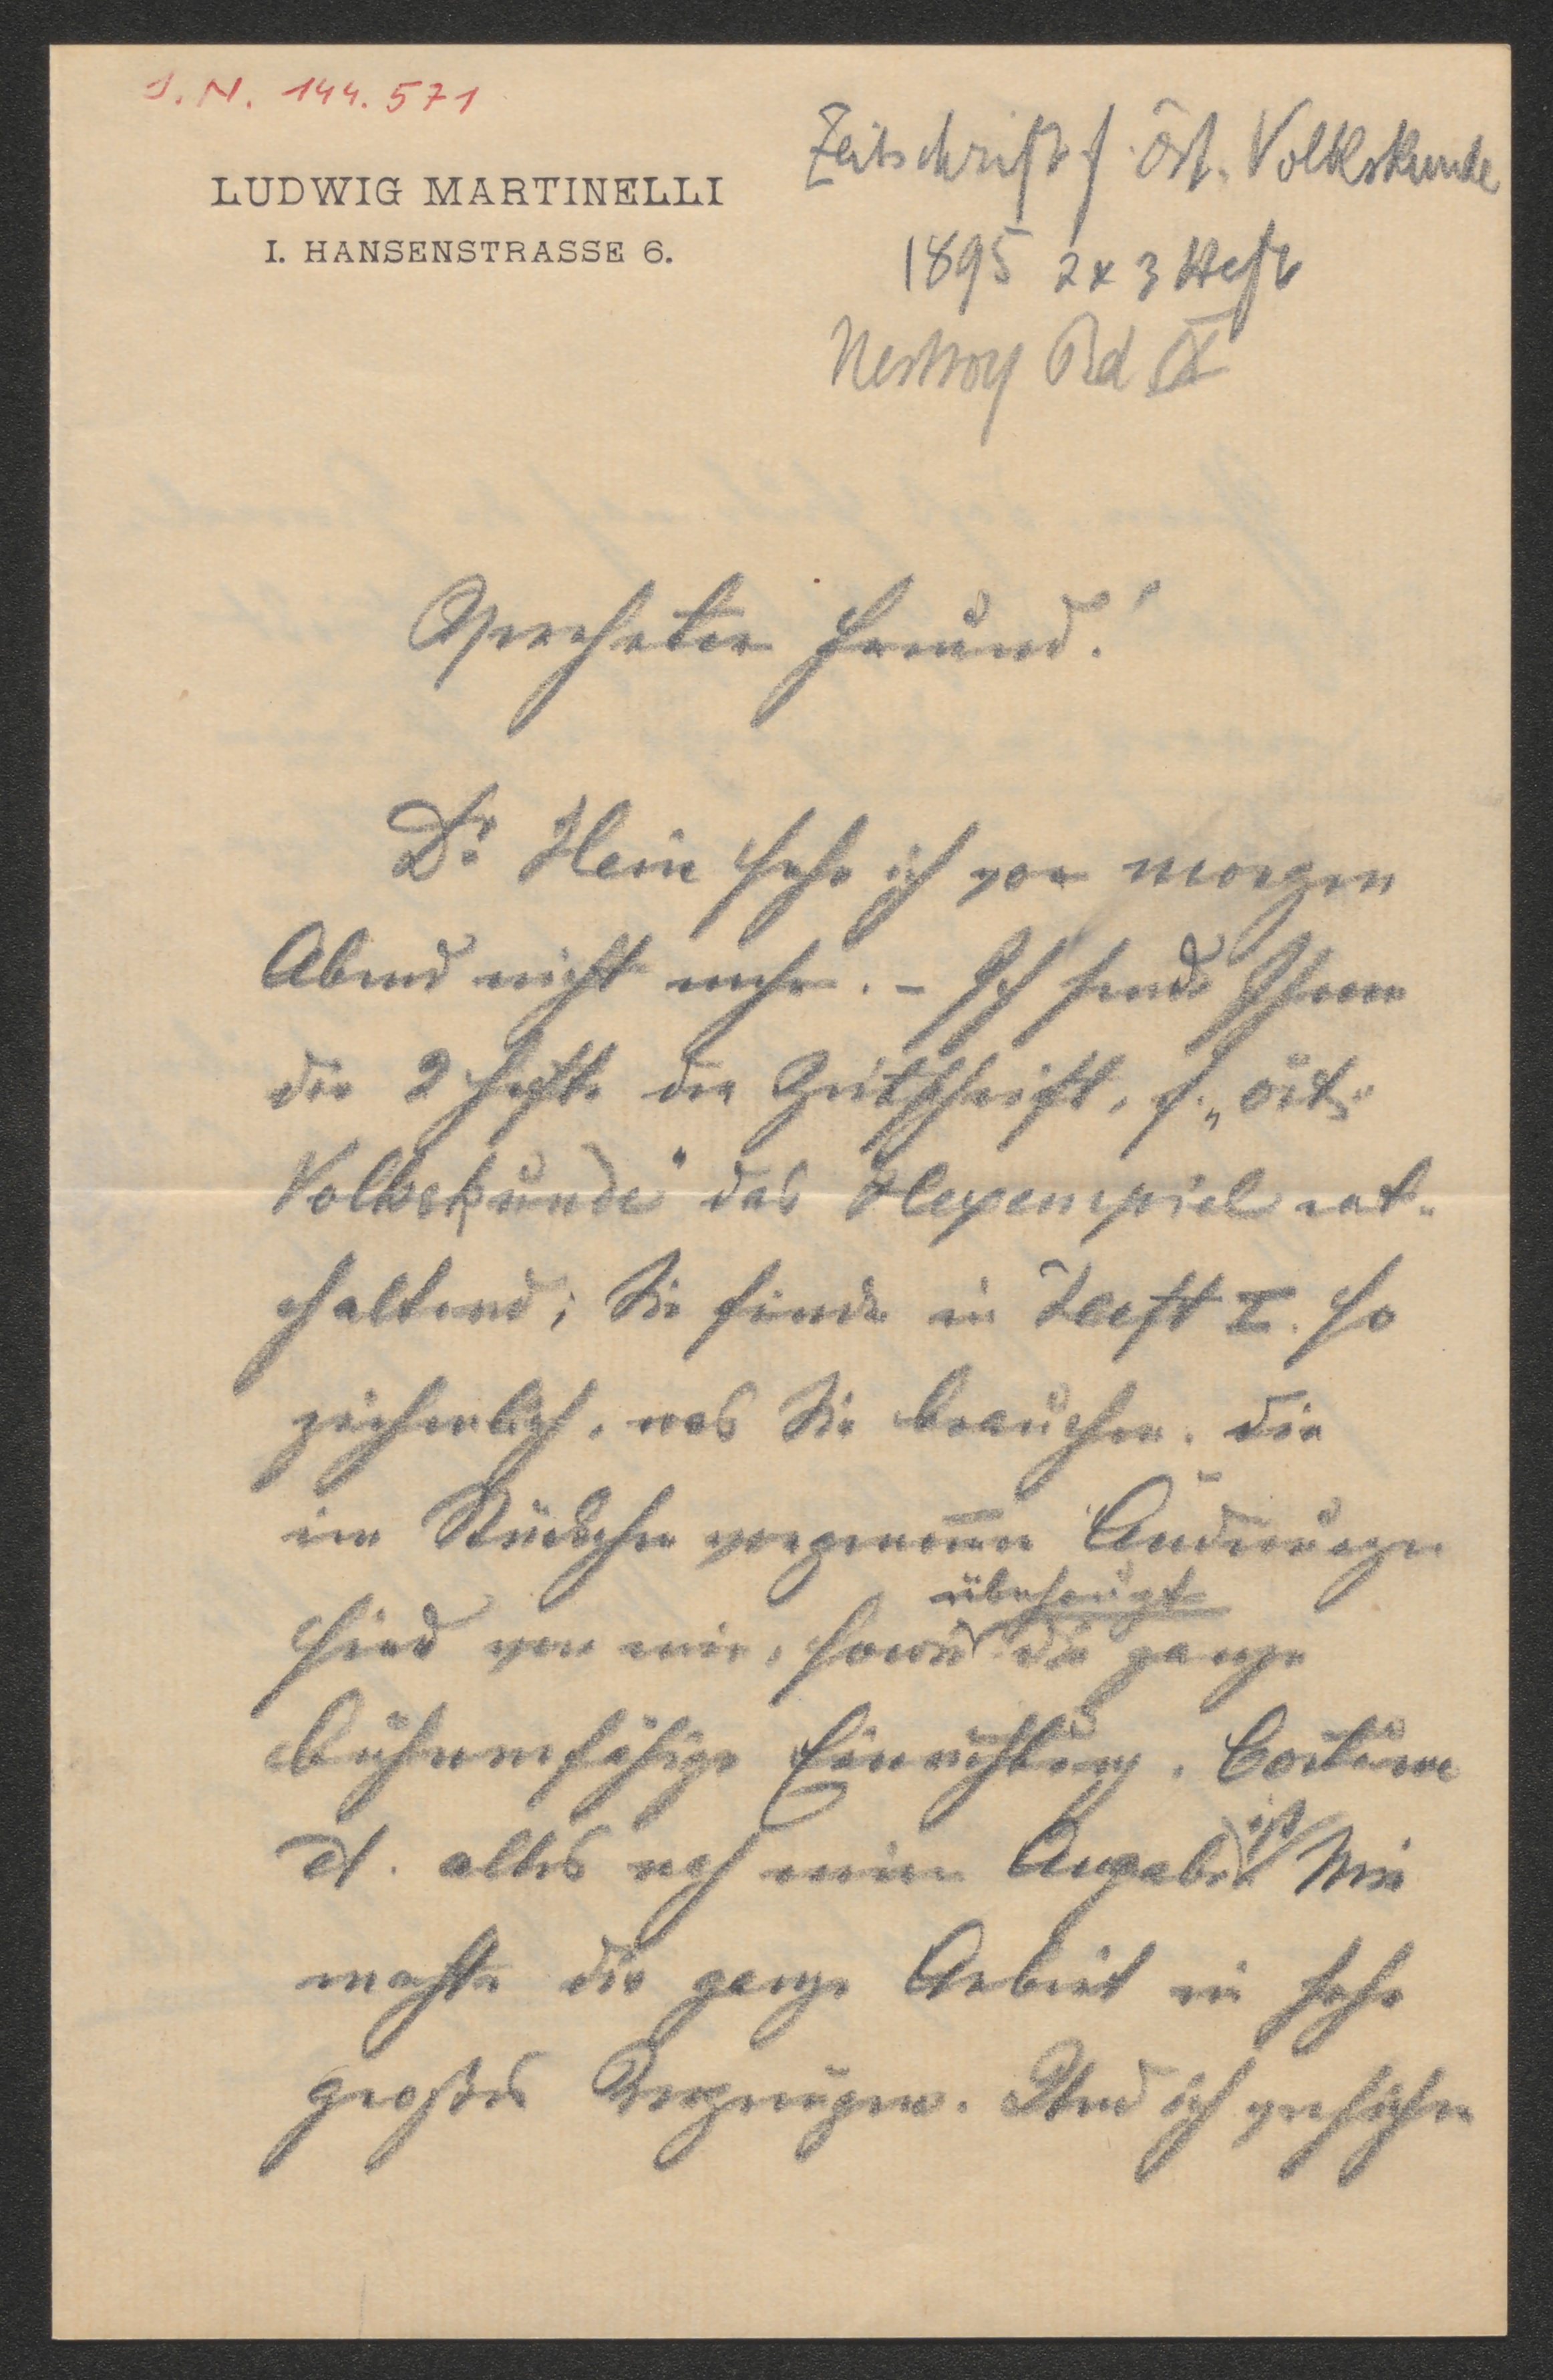 I. N. 144.571
Zeitschrift f. öst. Volkskunde
1895 2 x 3 Heft
Nestroy Bd IX
LUDWIG MARTINELLI
I. HANSENSTRASSE 6.
Verehrter Freund!
Dr. Hein sehe ich vor morgen
Abend nicht mehr. – Ich sende Ihnen
die 2 Hefte der Zeitschrift, f. „öst.
Volkskunde" das Hexenspiel ent-
haltend; Sie finden in Heft I. so
ziehmlich, was Sie brauchen. Die
im Stückchen vorgenom̄nen Änderungen
sind von mir, sowie überhaupt die ganze
bühnenfähige Einrichtung. Costüme
alles nach meinen Angaben ist Mir
machte die ganze Arbeit ein sehr
großes Vergnügen. Und ich versichere